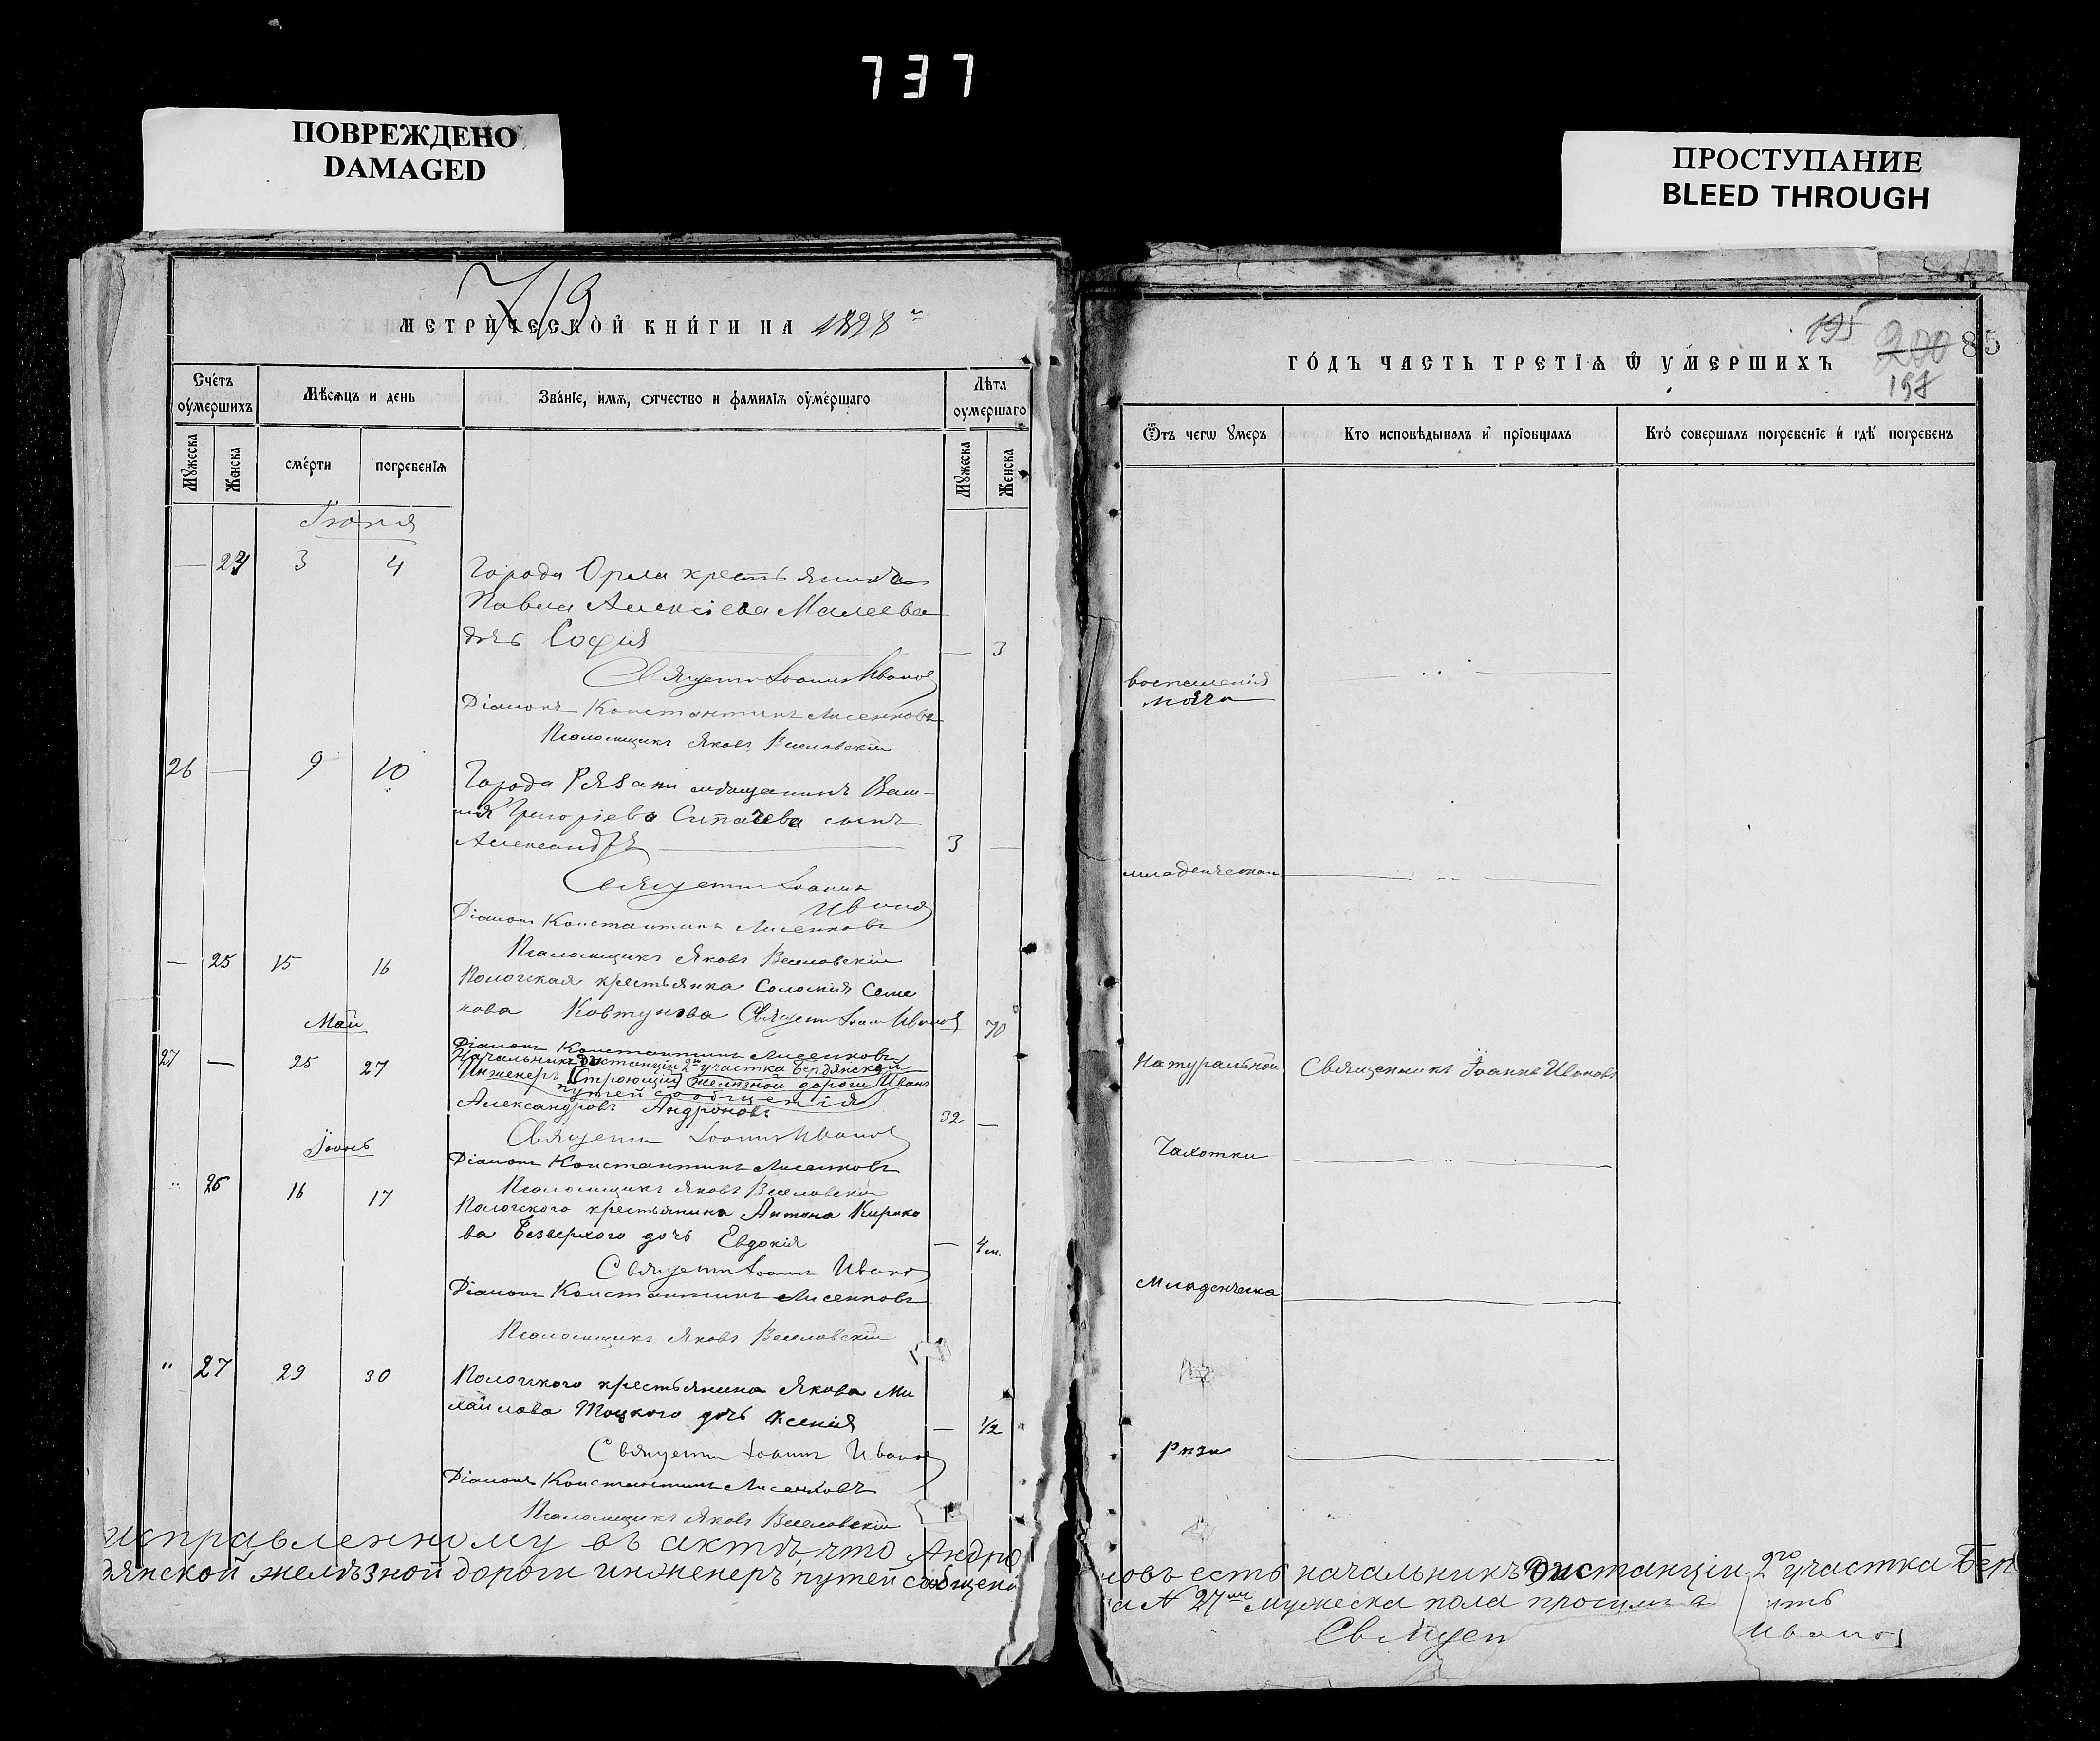 737
ПОВРЕЖДЕНО
DAMAGED
ПРОСТУПАНИЕ
BLEED THROUGH
719
МЕТРИЧЕСКОЙ КНИГИ НА 1898 г
Счетъ оумершихъ
Мѣсяцъ и день
Званіе, имя, отчество и фамилія оумершаго
Лѣта оумершаго
Мужеска
Женска
смерти
погребенія
Мужеска
Женска
Іюня
— 24 3 4 Города Орла крестьянина
Павла Алексіева Малеева
дочь Софія — 3
Священникъ Іоаннъ Ивановъ
Діаконъ Константинъ Лисенковъ
Псаломщикъ Яковъ Веселовскій
26 — 9 10 Города Рязани мѣщанина Васи-
лія Григоріева Сипачева сынъ
Александръ 3 —
Священникъ Іоаннъ
Ивановъ
Діаконъ Константинъ Лисенковъ
Псаломщикъ Яковъ Веселовскій
— 25 15 16 Пологская крестьянка Соломія Семе
нова Ковтунова Священникъ Іоаннъ Ивановъ 70
Діаконъ Константинъ Лисенковъ
Май
27 — 25 27 Начальникъ дистанціи 2го участка Бердянской
Инженеръ (Строющій) желѣзной дороги Иванъ
путей сообщенія
Александровъ Андроновъ 32 —
Священникъ Іоаннъ Ивановъ
Діаконъ Константинъ Лисенковъ
Псаломщикъ Яковъ Веселовскій
Іюнь
" 26 16 17 Пологского крестьянина Антона Кирико
ва Безверхого дочь Евдокія — 4 м.
Священникъ Іоаннъ Ивановъ
Діаконъ Константинъ Лисенковъ
Псаломщикъ Яковъ Веселовскій
" 27 29 30 Пологского крестьянина Якова Ми
хайлова Тоцкого дочь Ксенія — 1/2
Священникъ Іоаннъ Ивановъ
Діаконъ Константинъ Лисенковъ
Псаломщикъ Яковъ Веселовскій
исправленному въ актѣ, что Андро
дянской желѣзной дороги инженеръ путей сообщені
195 200 85
198
ГОДЪ ЧАСТЬ ТРЕТІЯ Ѿ УМЕРШИХЪ
Ѿтъ чегω умеръ
Кто исповѣдывалъ и пріобщалъ
Кто совершалъ погребеніе и гдѣ погребенъ
воспаленія
мозга
младенческая
Натуральной Священникъ Іоаннъ Ивановъ
Чахотки
Младенческа
новъ есть начальникъ дистанціи 2го участка Бер
а № 27 мужеска пола
Священ
Ивановъ